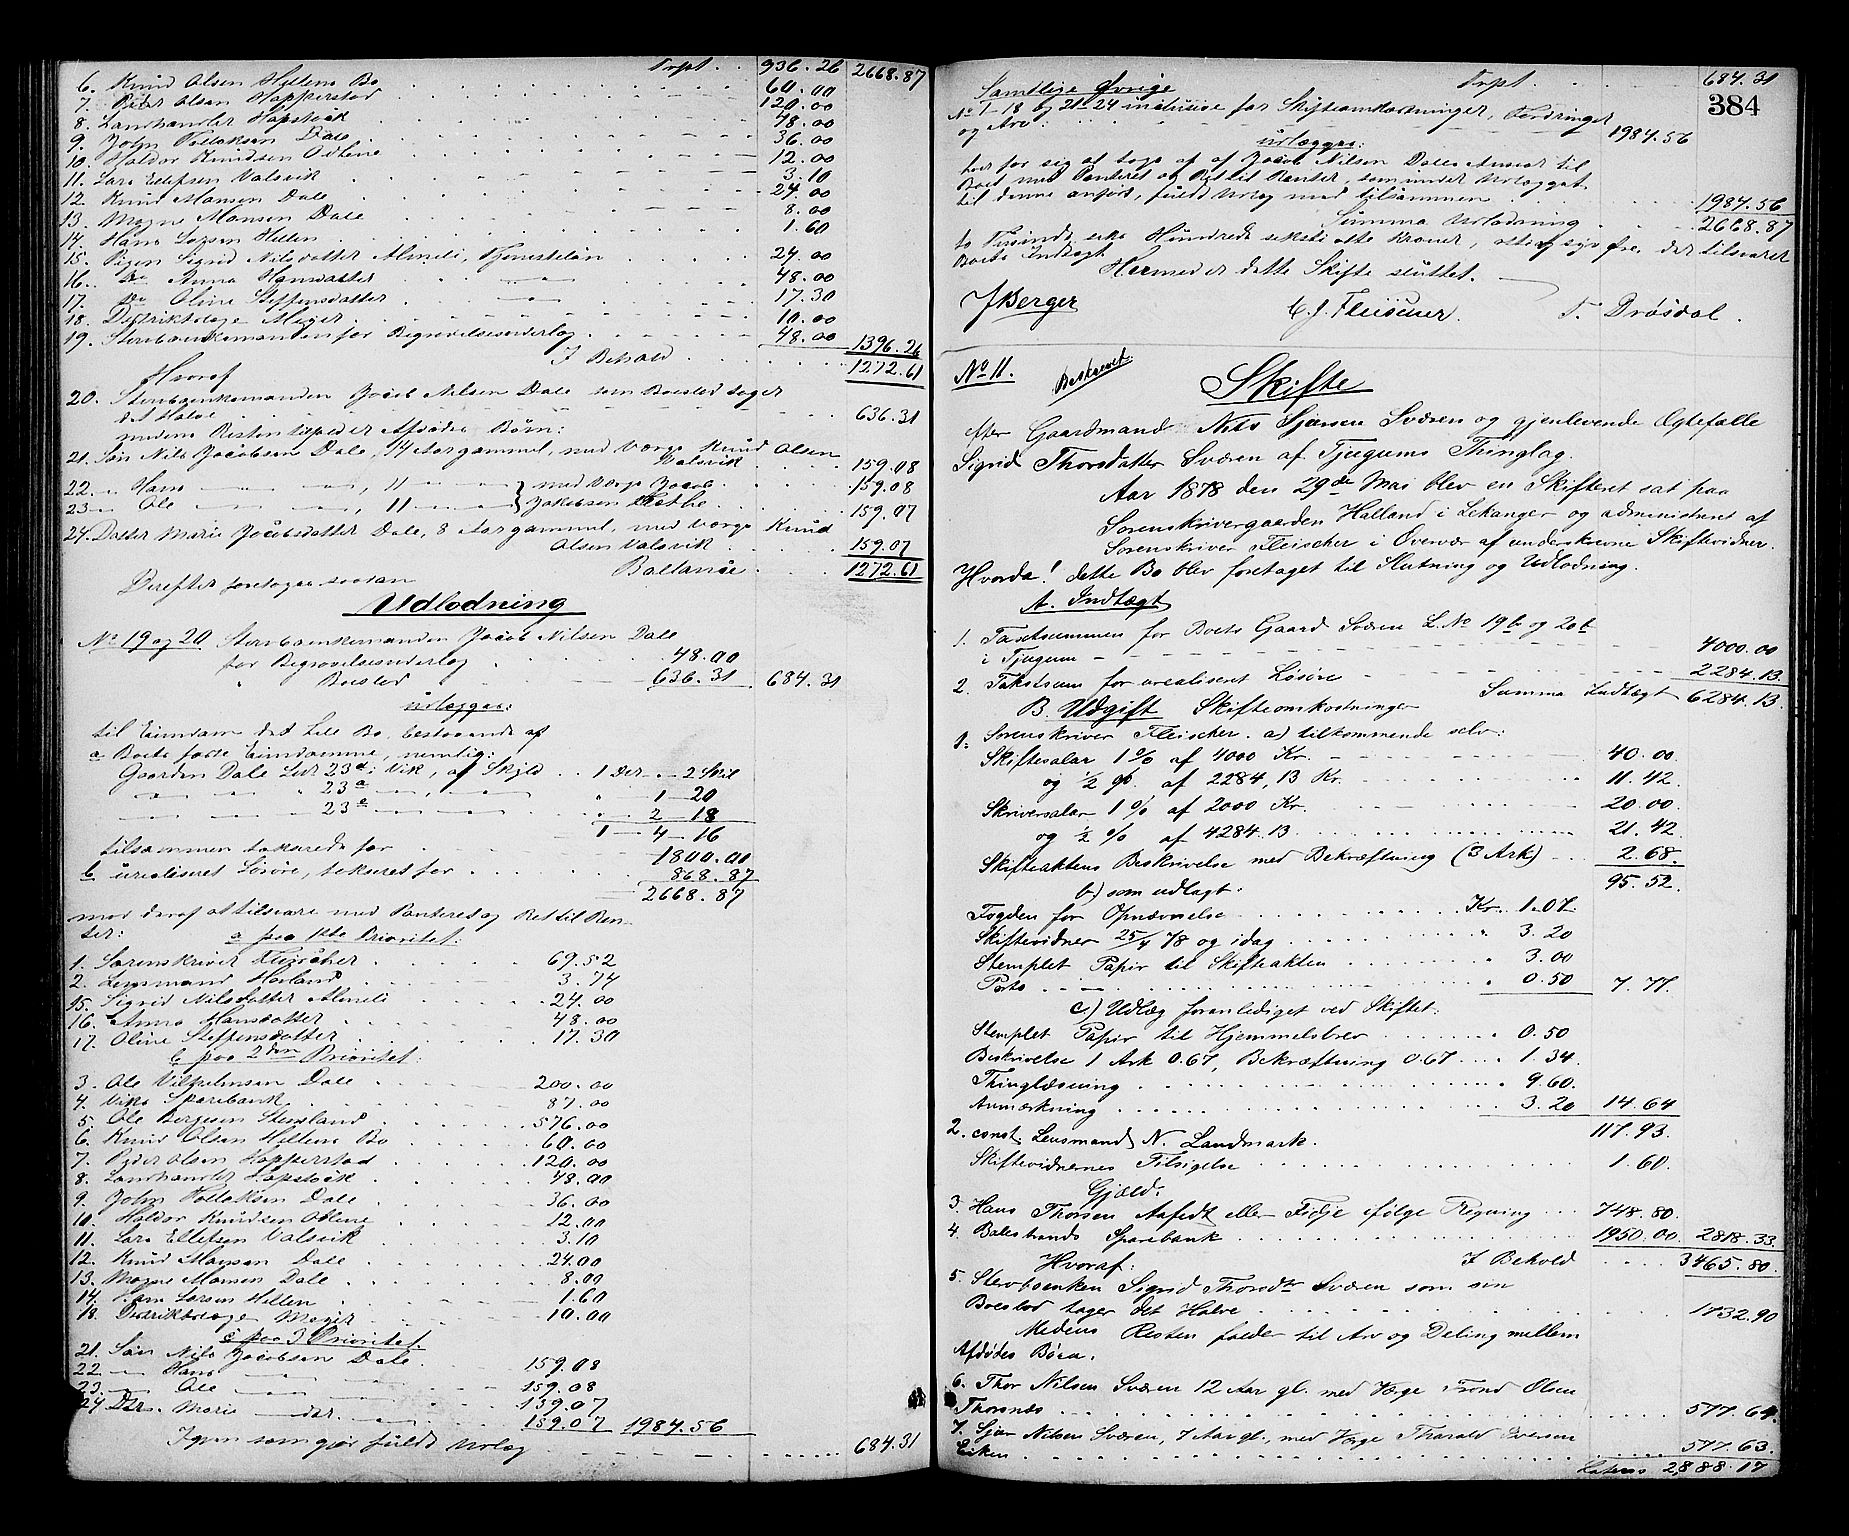 Trpt. . 936.26 2668.87
6. Knud Olsen Hellens Bo . . . 60.00
7. Peder Olsen Hopperstad . . . 120.00
8. Landhandler Hopstock . . . 48.00
9. John Dale . . . 36.00
10. Haldor Knudsen . . . 12.00
11. Lars Ellefsen Valsvik . . . 3.10
12. Knud Monsen Dale . . . 24.00
13. Mogne Monsen Dale . . . 8.00
14. Hans Larsen Hellen . . . 1.60
15. Pigen Sigrid Nilsdatter Almeli, Tjenesteløn . . . 24.00
16. Do Anna Hansdatter — " — . . . 48.00
17. Do Oline Steffensdatter — " — . . . 17.30
18. Distriktslæge . . . 10.00
19. Stervboenkemanden for Begravelsesvederlag . . . 48.00 1396.26
I Behold . . . 1272.61
Hvoraf
20. Stervboenkemanden Jacob Nilsen Dale som Boeslod tager
det Halve . . . 636.31
medens Resten tilfalder Afdødes Børn:
21. Søn Nils Jacobsen Dale, 14 Aar gammel, med Værge Knud Olsen
Valsvik . . . 159.08
22. — " — Hans — " — " —, 11 — " — med Værge Jacob . . . 159.08
23. — " — Ole — " — " —, 11 — " — Jakobsen . . . 159.07
24. Datter Marie Jacobsdatter Dale, 8 Aar gammel, med Værge Knud
Olsen Valsvik . . . 159.07
Derefter foretoges saadan Ballance . . . 1272.61
Udlodning
No 19 og 20 Stervboenkemanden Jacob Nilsen Dale
for Begravelsesvederlag . . . 48.00
" Boeslod . . . 636.31 684.31
udlægges:
til Eiendom det hele Bo, bestaaende af
a Boets faste Eiendomme, nemlig:
Gaarden Dale L.nr 23d i Vik, af Skyld . . 1 Dlr. - 2 Skil
— " — " 23a — " — , — " — " 1 — 20
— " — " 23e — " — " — " 2 — 18
1 — 4 — 16
tilsammen takserede for . . . 1800.00
b urealiseret Løsøre, takseret for . . . 868.87
2668.87
mod deraf at tilsvare med Panteret og Ret til Ren-
ter:
a paa 1ste Prioritet:
1. Sorenskriver Fleischer . . . 69.52
2. Lensmand Hovland . . . 3.74
15. Sigrid Nilsdatter Almeli . . . 24.00
16. Anna Hansdatter . . . 48.00
17. Oline Steffensdatter . . . 17.30
b paa 2den Prioritet:
3. Ole Vilhelmsen Dale . . . 200.00
4. Viks Sparebank . . . 87.00
5. Ole Stensland . . . 576.00
6. Knud Olsen Hellens Bo . . . 60.00
7. Peder Olsen Hopperstad . . . 120.00
8. Landhandler Hopstock . . . 48.00
9. John Dale . . . 36.00
10. Haldor Knudsen . . . 12.00
11. Lars Ellefsen Valsvik . . . 3.10
12. Knud Monsen Dale . . . 24.00
13. Mogne Monsen Dale . . . 8.00
14. Hans Larsen Hellen . . . 1.60
18. Distriktslæge . . . 10.00
c paa 3 Prioritet.
21. Søn Nils Jacobsen Dale . . . 159.08
22 — " — Hans — " — " — . . . 159.08
23. — " — Ole — " — " — . . . 159.07
24 Dtr. Marie — dtr. — " — . . . 159.07 1984.56
Igjen som gjør fuldt Udlæg . . . 684.31
Trpt. . . . 684.31
384
Samtlige Øvrige
No 1-18 og 21-24 inclusive for Skifteomkostninger, Fordringer
og Arv . . . 1984.56
udlægges:
hver for sig at tage af af Jacob Nilsen Dales Ansvar til
Boet, med Panteret og Ret til Renter, som under Udlægget
til denne anført, fuldt Udlæg med tilsammen . . . 1984.56
Summa Udlodning . . . 2668.87
to Tusinde sex Hundrede seksti otte Kroner, otti og syv Øre, der tilsvarer
Boets Indtægt
Hermed er dette Skifte sluttet.
J Berger C. J. Fleischer. T. Drøsdal.
No 11. Beskrevet.
Skifte
efter Gaardmand Nils Sjursen Sværen og gjenlevende Ægtefælle
Sigrid Thorsdatter Sværen af Tjugums Thinglag.
Aar 1878 den 29de Mai blev en Skifteret sat paa
Sorenskrivergaarden Halland i Lekanger og administreret af
Sorenskriver Fleischer i Overvær af underskrevne Skiftevidner.
Hvorda! dette Bo blev foretaget til Slutning og Udlodning.
A. Indtægt
1. Taxtsummen for Boets Gaard Sværen L. No 19b og 20b
i Tjugum . . . 4000.00
2. Takstsum for urealiseret Løsøre . . . 2284.13
Summa Indtægt 6284.13
B. Udgift Skifteomkostninger
1. Sorenskriver Fleischer. a) tilkommende selv:
Skiftesalær 1 % af 4000 Kr. . . . 40.00
og 1/2 % af 2284,13 Kr. . . . 11.42
Skriversalær 1 % af 2000 Kr. . . . 20.00
og 1/2 % af 4284.13 . . . 21.42
Skifteaktens Beskrivelse med Bekræftning (3 Ark) . . . 2.68
95.52.
b) som udlagt:
Fogden for Opnævnelse . . . Kr. 1.07
Skiftevidner 25/4 78 og idag . . . " 3.20
Stemplet Papir til Skifteakten . . . " 3.00
Porto . . . " 0.50 7.77.
c) Udlæg foranlediget ved Skiftet:
Stemplet Papir til Hjemmelsbrev . . . " 0.50
Beskrivelse 1 Ark 0.67, Bekræftning 0.67 . . . " 1.34
Thinglæsning . . . " 9.60.
Anmærkning . . . 3.20 14.64
117.93.
2. const. Lensmand N. Landmark.
Skiftevidnernes Tilsigelse . . . 1.60.
Gjæld.
3. Hans Thorsen Aafedt eller ifølge Regning . . . 748.80.
4. Balestrands Sparebank . . . 1950.00 2818.33
Hvoraf: I Behold . . . 3465.80.
5. Stervboenken Sigrid Thorsdtr Sværen som sin
Boeslod tager det Halve . . . 1732.90
Medens Resten falder til Arv og Deling mellem
Afdødes Børn.
6. Thor Nilsen Sværen 12 Aar gl. med Værge Trond Olsen
Thorsnæs . . . 577.64
7. Sjur Nilsen Sværen, 7 Aar gl., med Værge Tharald Iversen
Eiken . . . 577.63
Lateris 2888.17